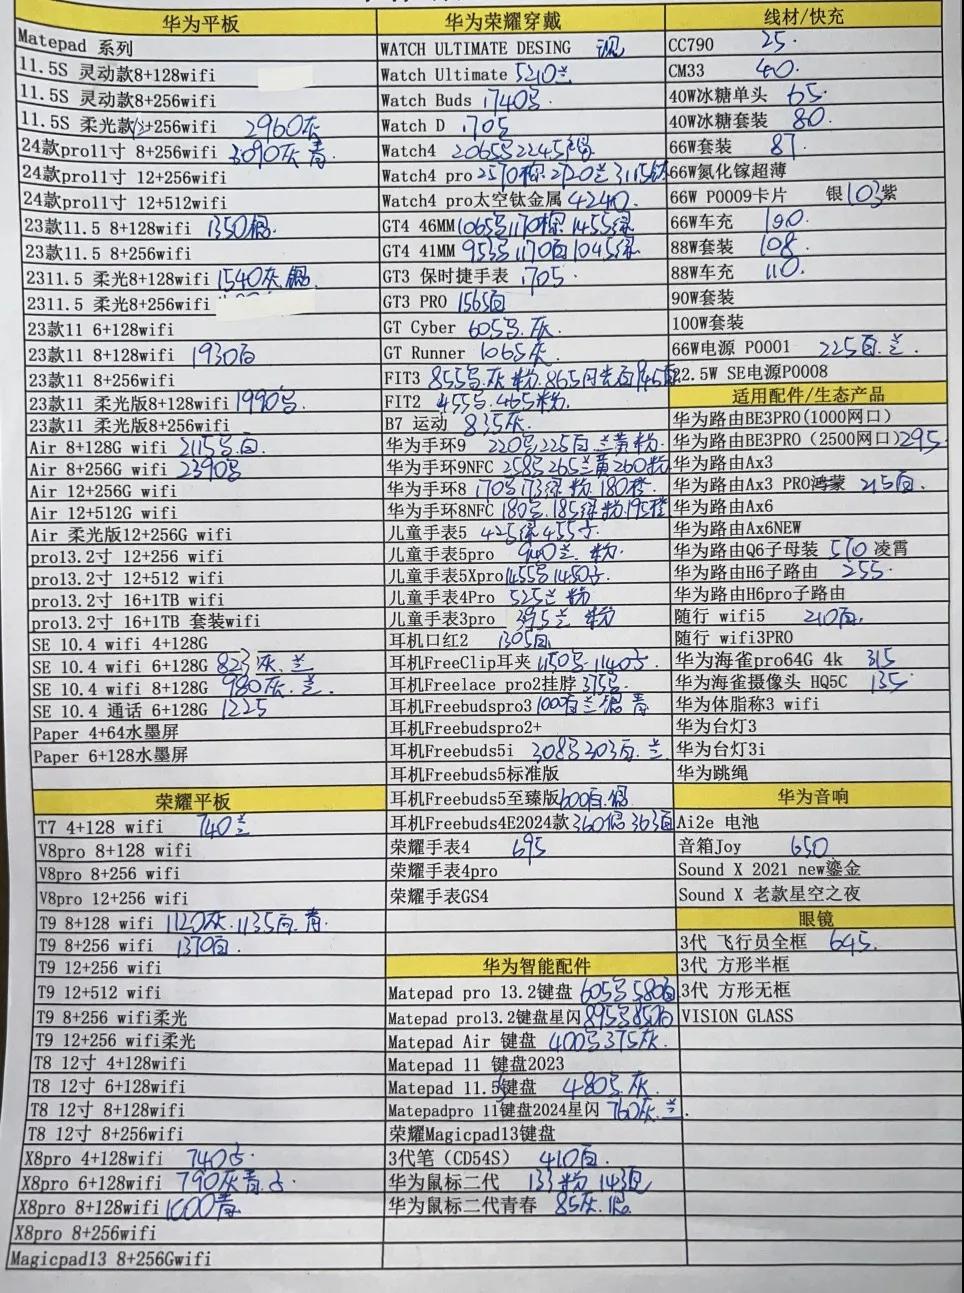 华为平板
Matepad 系列
11.5S 灵动款8+128wifi
11.5S 灵动款8+256wifi
11.5S 柔光款12+256wifi 2960灰
24款pro11寸 8+256wifi 3090灰 青
24款pro11寸 12+256wifi
24款pro11寸 12+512wifi
23款11.5 8+128wifi 1350
23款11.5 8+256wifi
2311.5 柔光8+128wifi 1540灰
2311.5 柔光8+256wifi
23款11 6+128wifi
23款11 8+128wifi 1930白
23款11 8+256wifi
23款11 柔光版8+128wifi 1990
23款11 柔光版8+256wifi
Air 8+128G wifi 2115 白
Air 8+256G wifi 2390
Air 12+256G wifi
Air 12+512G wifi
Air 柔光版12+256G wifi
pro13.2寸 12+256 wifi
pro13.2寸 12+512 wifi
pro13.2寸 16+1TB wifi
pro13.2寸 16+1TB 套装wifi
SE 10.4 wifi 4+128G
SE 10.4 wifi 6+128G 823灰.兰
SE 10.4 wifi 8+128G 980灰.兰.
SE 10.4 通话 6+128G 1225
Paper 4+64水墨屏
Paper 6+128水墨屏
荣耀平板
T7 4+128 wifi 740兰
V8pro 8+128 wifi
V8pro 8+256 wifi
V8pro 12+256 wifi
T9 8+128 wifi 1120灰.1135白.青.
T9 8+256 wifi 1370白.
T9 12+256 wifi
T9 12+512 wifi
T9 8+256 wifi柔光
T9 12+256 wifi柔光
T8 12寸 4+128wifi
T8 12寸 6+128wifi
T8 12寸 8+128wifi
T8 12寸 8+256wifi
X8pro 4+128wifi 740
X8pro 6+128wifi 790灰青
X8pro 8+128wifi 1000青
X8pro 8+256wifi
Magicpad13 8+256Gwifi
华为荣耀穿戴
WATCH ULTIMATE DESING 现
Watch Ultimate 5210兰
Watch Buds 1740
Watch D 1705
Watch4 2065 2245
Watch4 pro 2570棕 2720兰 3115钛
Watch4 pro太空钛金属 4240.
GT4 46MM 1065 1170棕 1455绿
GT4 41MM 955 1170白 1045绿
GT3 保时捷手表 1705
GT3 PRO 1565白
GT Cyber 605 灰.
GT Runner 1065灰.
FIT3 855 灰 粉.865
FIT2 455 .465粉.
B7 运动 835灰.
华为手环9 220 225白 兰黄 粉
华为手环9NFC 258 265兰黄260粉
华为手环8 170 173绿 粉 180橙.
华为手环8NFC 180 .185绿粉195橙
儿童手表5 425绿 455
儿童手表5pro 940兰 粉.
儿童手表5Xpro 1455 1480
儿童手表4Pro 525兰 粉
儿童手表3pro 395兰 粉
耳机口红2 1305白
耳机FreeClip耳夹 1150 1140
耳机Freelace pro2挂脖 375
耳机Freebudspro3 1000白兰银 青
耳机Freebudspro2+
耳机Freebuds5i 308 303白.兰
耳机Freebuds5标准版
耳机Freebuds5至臻版 600白.银
耳机Freebuds4E2024款 360银 363白
荣耀手表4 695
荣耀手表4pro
荣耀手表GS4
华为智能配件
Matepad pro 13.2键盘 605 580白
Matepad pro13.2键盘星闪 895 850白
Matepad Air 键盘 400 375灰.
Matepad 11 键盘2023
Matepad 11.5键盘 480 .灰.
Matepadpro 11键盘2024星闪 760灰.兰.
荣耀Magicpad13键盘
3代笔（CD54S） 410白.
华为鼠标二代 133粉 143白
华为鼠标二代青春 85灰.
线材/快充
CC790 25.
CM33 40.
40W冰糖单头 65.
40W冰糖套装 80.
66W套装 87.
66W氮化镓超薄
66W P0009卡片 银103紫
66W车充 100.
88W套装 108.
88W车充 110.
90W套装
100W套装
66W电源 P0001 225白.兰.
22.5W SE电源P0008
适用配件/生态产品
华为路由BE3PRO(1000网口)
华为路由BE3PRO（2500网口)295
华为路由Ax3
华为路由Ax3 PRO鸿蒙 215白.
华为路由Ax6
华为路由Ax6NEW
华为路由Q6子母装 570 凌霄
华为路由H6子路由 255.
华为路由H6pro子路由
随行 wifi5 210白.
随行 wifi3PRO
华为海雀pro64G 4k 315
华为海雀摄像头 HQ5C 135
华为体脂称3 wifi
华为台灯3
华为台灯3i
华为跳绳
华为音响
Ai2e 电池
音箱Joy 650
Sound X 2021 new鎏金
Sound X 老款星空之夜
眼镜
3代 飞行员全框 645.
3代 方形半框
3代 方形无框
VISION GLASS